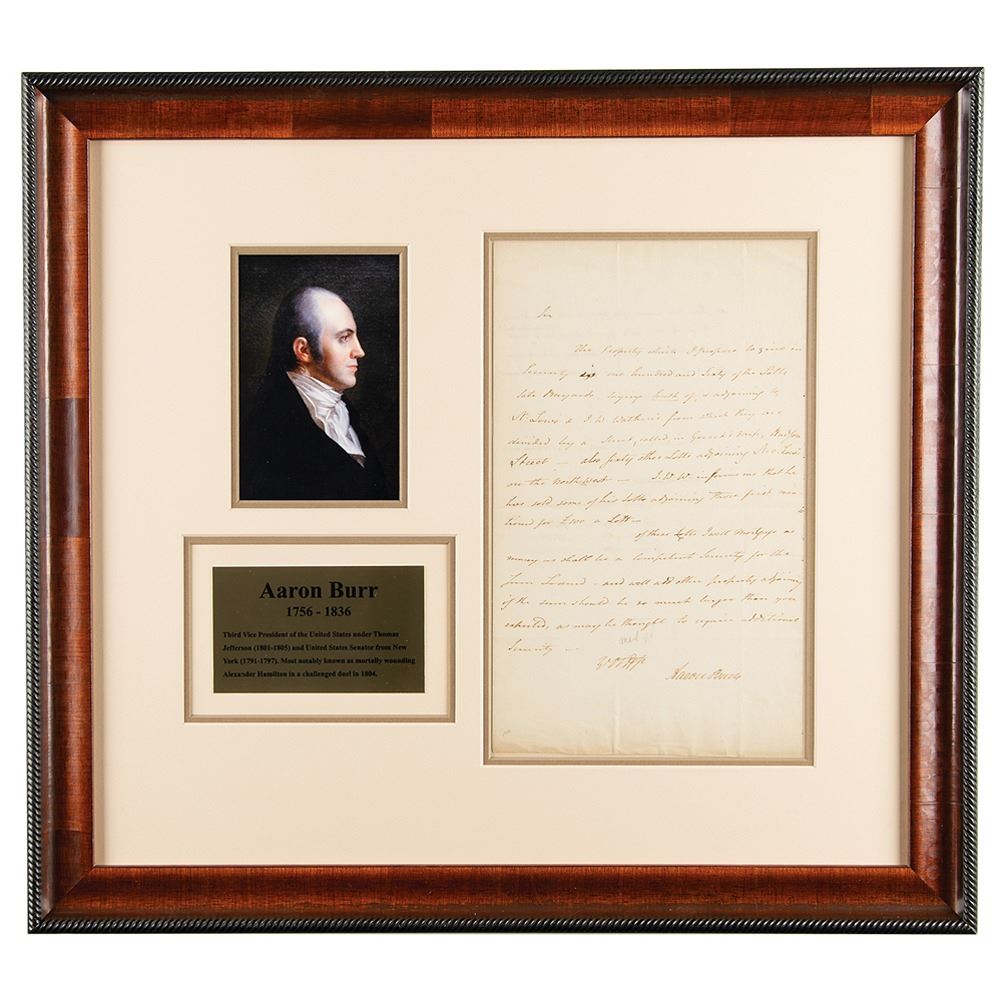 Aaron Burr
1756 - 1836
Third Vice President of the United States under Thomas
Jefferson (1801-1805) and United States Senator from New
York (1791-1797). Most notably known as mortally wounding
Alexander Hamilton in a challenged duel in 1804.
Sir
The Property which I propose to give in
Security is one hundred and sixty of the Lotts
late Bayards laying South of, & adjoining to
& I W Watkins from which they are
divided by a Street, called in Map, Hudson
Street — also sixty other Lotts adjoining
on the North West — I. W W informs me that he
has sold some of his Lotts adjoining those first men-
tioned for £100 a Lott —
of these Lotts I will Mortgage as
many as shall be a Competent Security for the
Sum Loaned - and will add other property adjoining
if the sum should be so much larger than you
expected, as may be thought to require additional
Security —
Aaron Burr